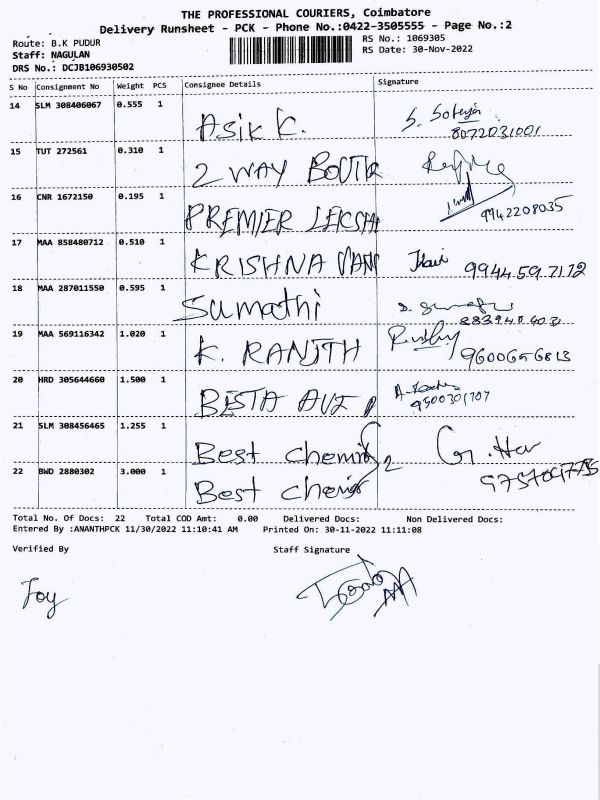 THE PROFESSIONAL COURIERS, Coimbatore
Delivery Runsheet - PCK - Phone No.:0422-3505555 - Page No.:2
Route: B.K PUDUR
RS No.: 1069305
Staff: NAGULAN
RS Date: 30-Nov-2022
DRS No.: DCJB106930502
S No Consignment No Weight PCS Consignee Details Signature
14 SLM 308406067 0.555 1 Asik K. 8072031001
15 TUT 272561 0.310 1 2 WAY
16 CNR 1672150 0.195 1 PREMIER 9942208035
17 MAA 858480712 0.510 1 KRISHNA 9944597172
18 MAA 287011550 0.595 1 Sumathi
19 MAA 569116342 1.020 1 K. RANJTH
20 HRD 305644660 1.500 1 9500301707
21 SLM 308456465 1.255 1 Best
22 BWD 2880302 3.000 1 Best
Total No. Of Docs: 22 Total COD Amt: 0.00 Delivered Docs: Non Delivered Docs:
Entered By :ANANTHPCK 11/30/2022 11:10:41 AM Printed On: 30-11-2022 11:11:08
Verified By Staff Signature
Joy